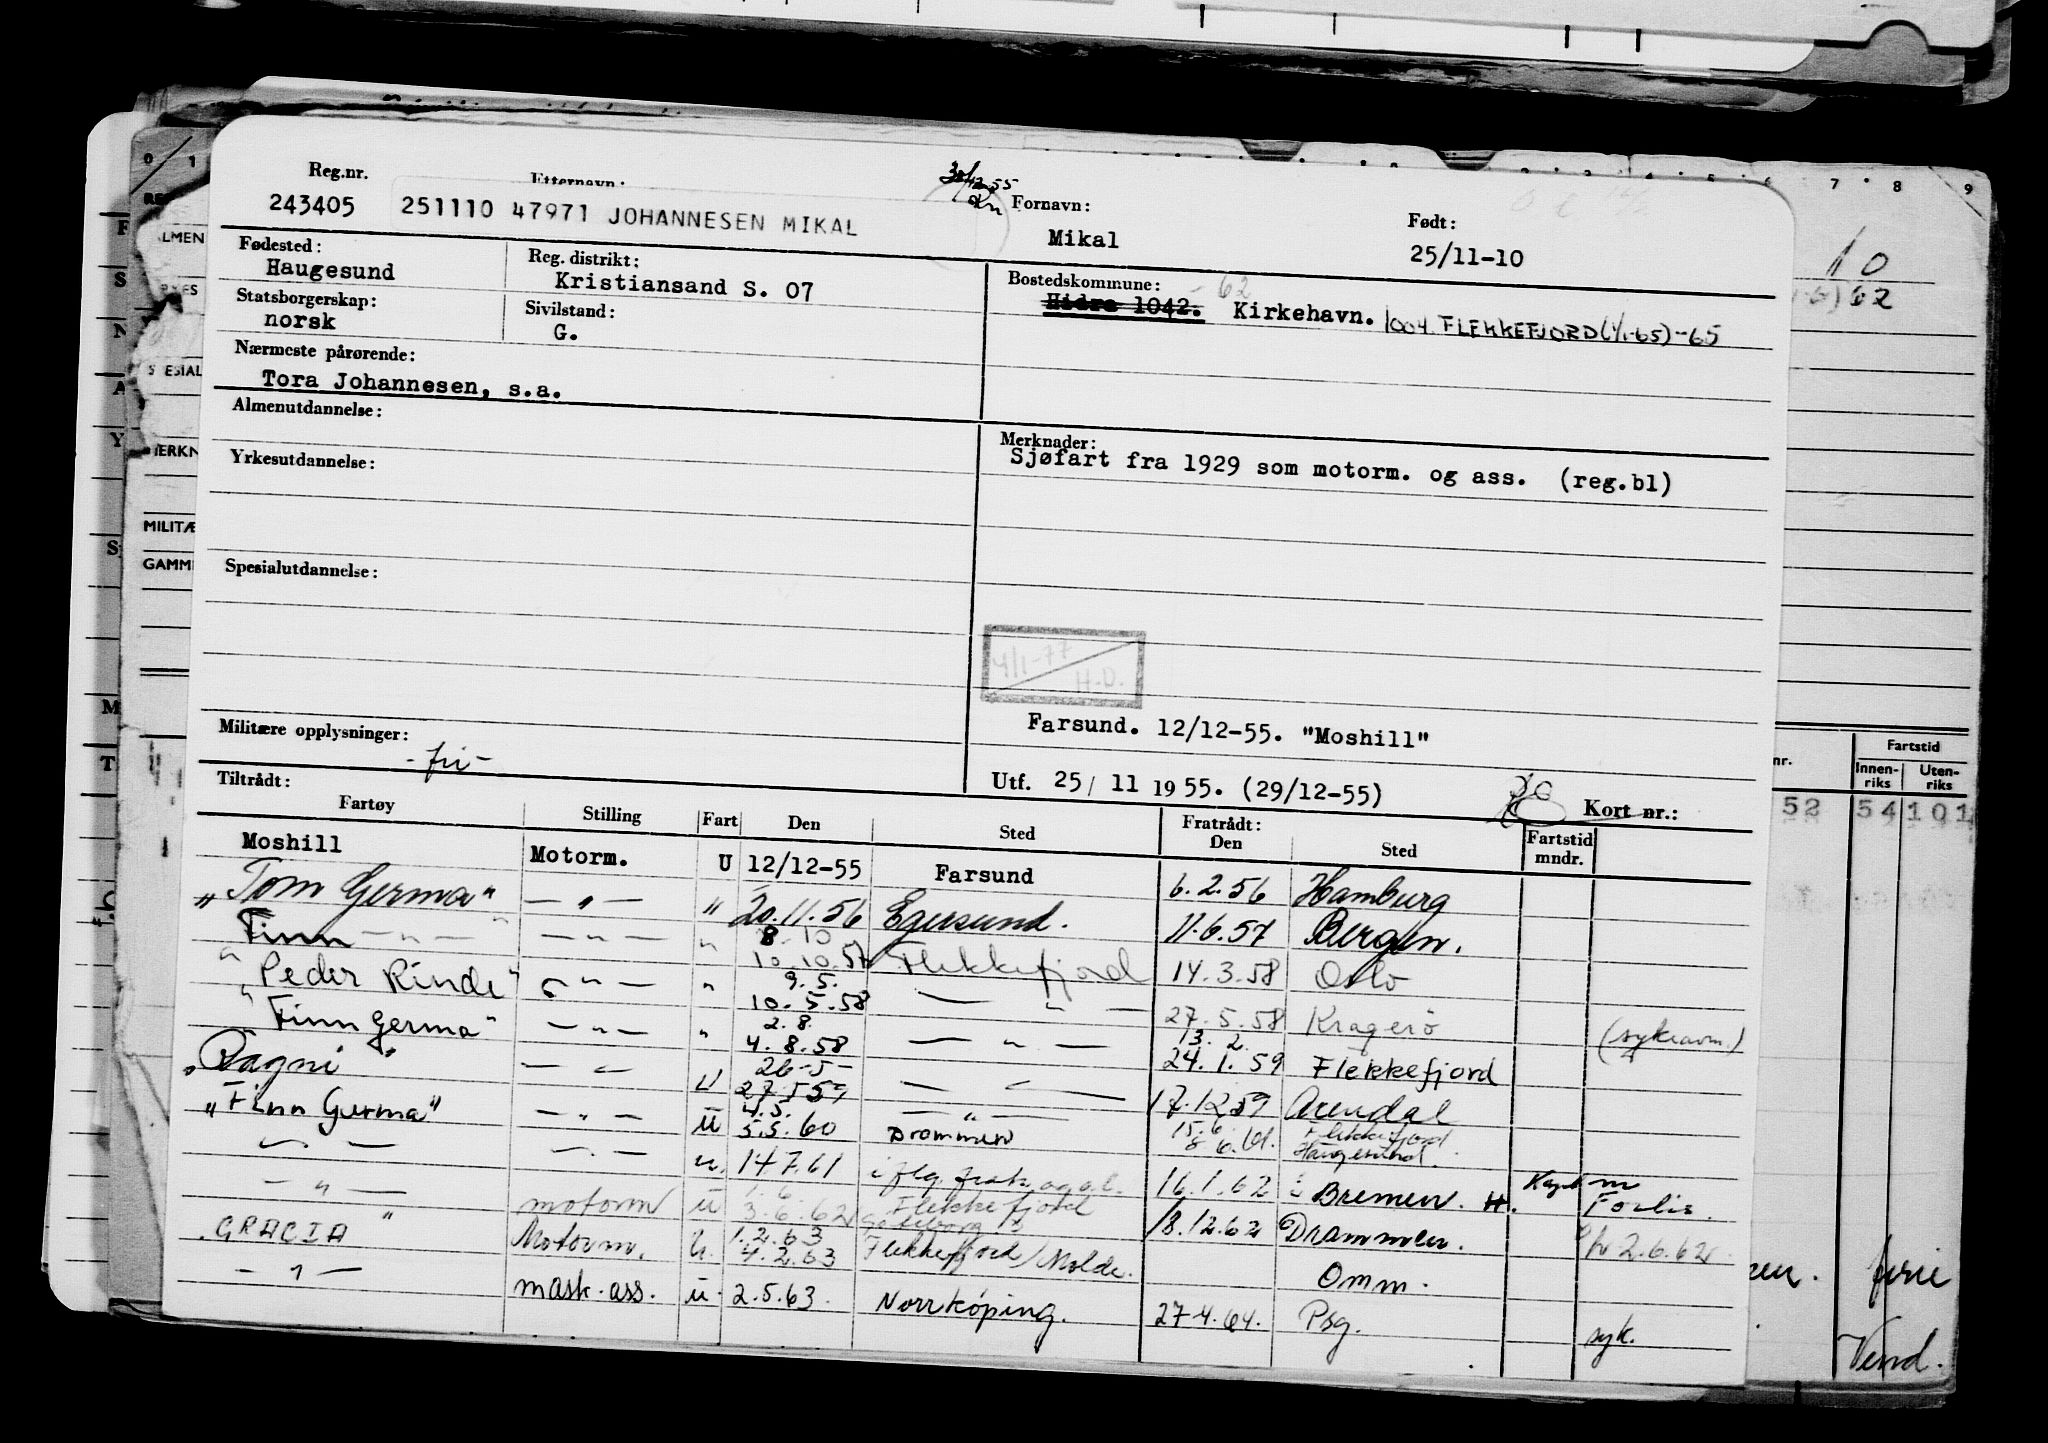 Reg.nr. Etternavn: 30/12-55 Fornavn: Født:
243405 251110 47971 JOHANNESEN MIKAL Mikal 25/11-10
Fødested: Reg. distrikt: Bostedskommune: -62
Haugesund Kristiansand S. 07 Hidra 1042. Kirkehavn. 1004 FLEKKEFJORD (1/1-65) -65
Statsborgerskap: Sivilstand:
norsk G.
Nærmeste pårørende:
Tora Johannesen, s.a.
Almenutdannelse: Merknader:
Sjøfart fra 1929 som motorm. og ass. (reg.bl)
Yrkesutdannelse:
Spesialutdannelse:
4/1-77
H.D.
Farsund. 12/12-55. "Moshill"
Militære opplysninger:
-fri-
Utf. 25/ 11 1955. (29/12-55) Kort nr.:
Tiltrådt: Fratrådt:
Fartøy Stilling Fart Den Sted Den Sted Fartstid mndr.
Moshill Motorm. U 12/12-55 Farsund 6.2.56 Hamburg
"Tom Germa" — " — " 20.11.56 Egersund. 11.6.57 Bergen.
"Finn — " — " — " — " 8-10 10.10.57 Flekkefjord 14.3.58 Oslo
"Peder Rinde" — " — " 9.5. 10.5.58 — " — 27.5.58 Kragerö (sykeavm.)
"Finn Germa" — " — " 2.8. 4.8.58 — " — 13.2. 24.1.59 Flekkefjord
"Dagni" — " — U 26-5- 27.5.59 — " — 17.12.59 Arendal
"Finn Germa" — " — u 4.5. 5.5.60 — " — Drammen 15.6. 8.6.61. Flekkefjord Haugesund.
— " — — " — u. 14.7.61 16.1.62 Bremen. H. Forlis.
— " — motorm u 1.6. 3.6.62 Flekkefjord Göteborg 18.12.62 Drammen. 2.6.62
"GRACIA" Motorm. u. 1.2.63 4.2.63 Flekkefjord/Molde. Omm.
— " — mask.ass. u. 2.5.63. Norrköping. 27.4.64. Psg. syk.
0 1 7 8 9
10
62
MILITÆ
GAMM
nr. Fartstid
Innen-riks Uten-riks
52 54 101
ferie
Vend.